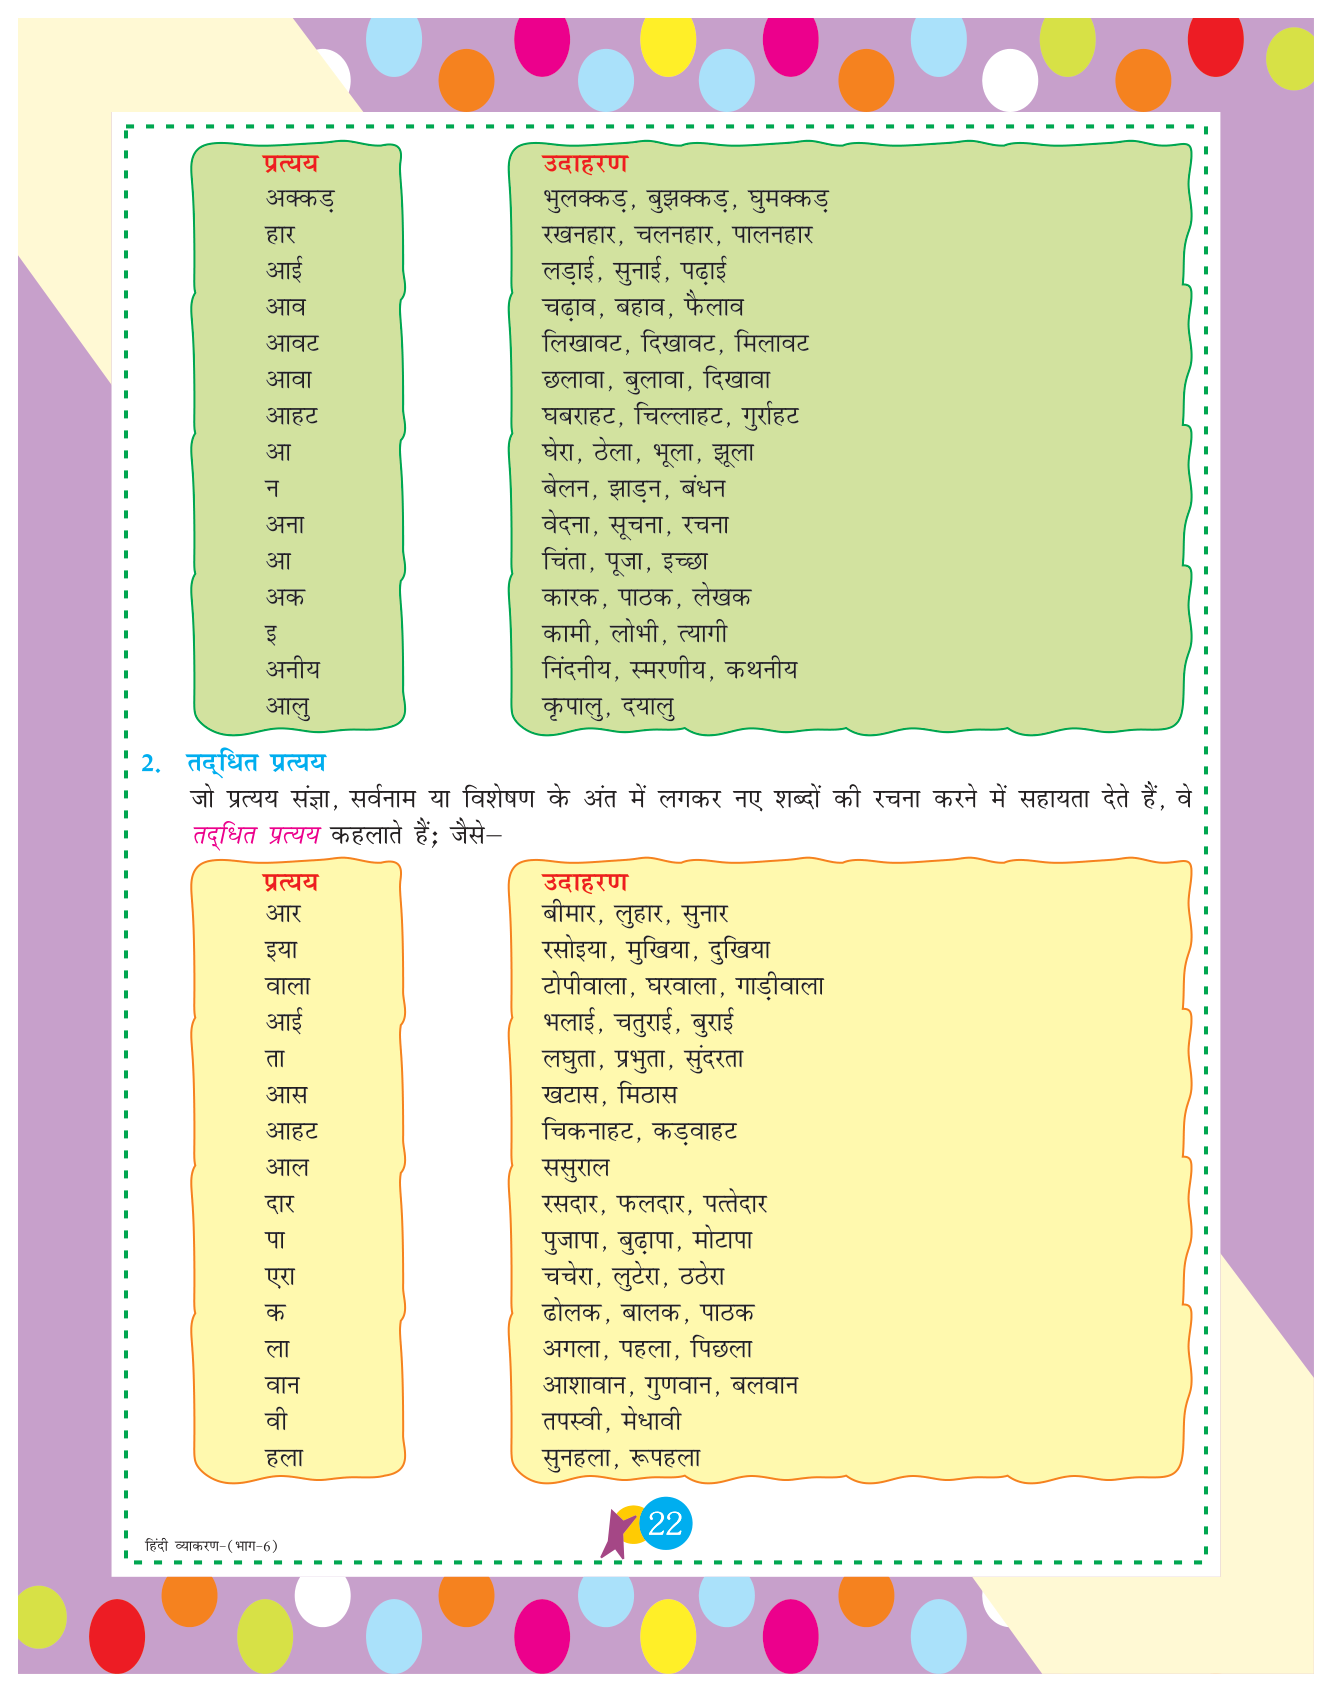 प्रत्यय उदाहरण
अक्कड़ भुलक्कड़, बुझक्कड़, घुमक्कड़
हार रखनहार, चलनहार, पालनहार
आई लड़ाई, सुनाई, पढ़ाई
आव चढ़ाव, बहाव, फैलाव
आवट लिखावट, दिखावट, मिलावट
आवा छलावा, बुलावा, दिखावा
आहट घबराहट, चिल्लाहट, गुर्राहट
आ घेरा, ठेला, भूला, झूला
न बेलन, झाड़न, बंधन
अना वेदना, सूचना, रचना
आ चिंता, पूजा, इच्छा
अक कारक, पाठक, लेखक
इ कामी, लोभी, त्यागी
अनीय निंदनीय, स्मरणीय, कथनीय
आलु कृपालु, दयालु
2. तद्‌धित प्रत्यय
जो प्रत्यय संज्ञा, सर्वनाम या विशेषण के अंत में लगकर नए शब्दों की रचना करने में सहायता देते हैं, वे
तद्‌धित प्रत्यय कहलाते हैं; जैसे–
प्रत्यय उदाहरण
आर बीमार, लुहार, सुनार
इया रसोइया, मुखिया, दुखिया
वाला टोपीवाला, घरवाला, गाड़ीवाला
आई भलाई, चतुराई, बुराई
ता लघुता, प्रभुता, सुंदरता
आस खटास, मिठास
आहट चिकनाहट, कड़वाहट
आल ससुराल
दार रसदार, फलदार, पत्तेदार
पा पुजापा, बुढ़ापा, मोटापा
एरा चचेरा, लुटेरा, ठठेरा
क ढोलक, बालक, पाठक
ला अगला, पहला, पिछला
वान आशावान, गुणवान, बलवान
वी तपस्वी, मेधावी
हला सुनहला, रूपहला
22
हिंदी व्याकरण-(भाग-6)